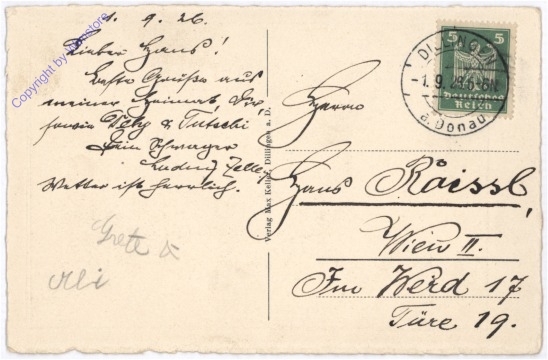 1. 9. 26.
Lieber Hans!
Beste Grüße aus
meiner Heimat, Dir,
sowie Pety & Tutschi
Dein Schwager
Ludwig
Wetter ist herrlich.
Grete &
Verlag Max Keller, Dillingen a. D.
5 5
Deutsches
Reich
DILLINGEN
-1.9.26.
a. Donau
Herrn
Hans Röissl,
Wien II.
Im Werd 17
Türe 19.
Copyright by